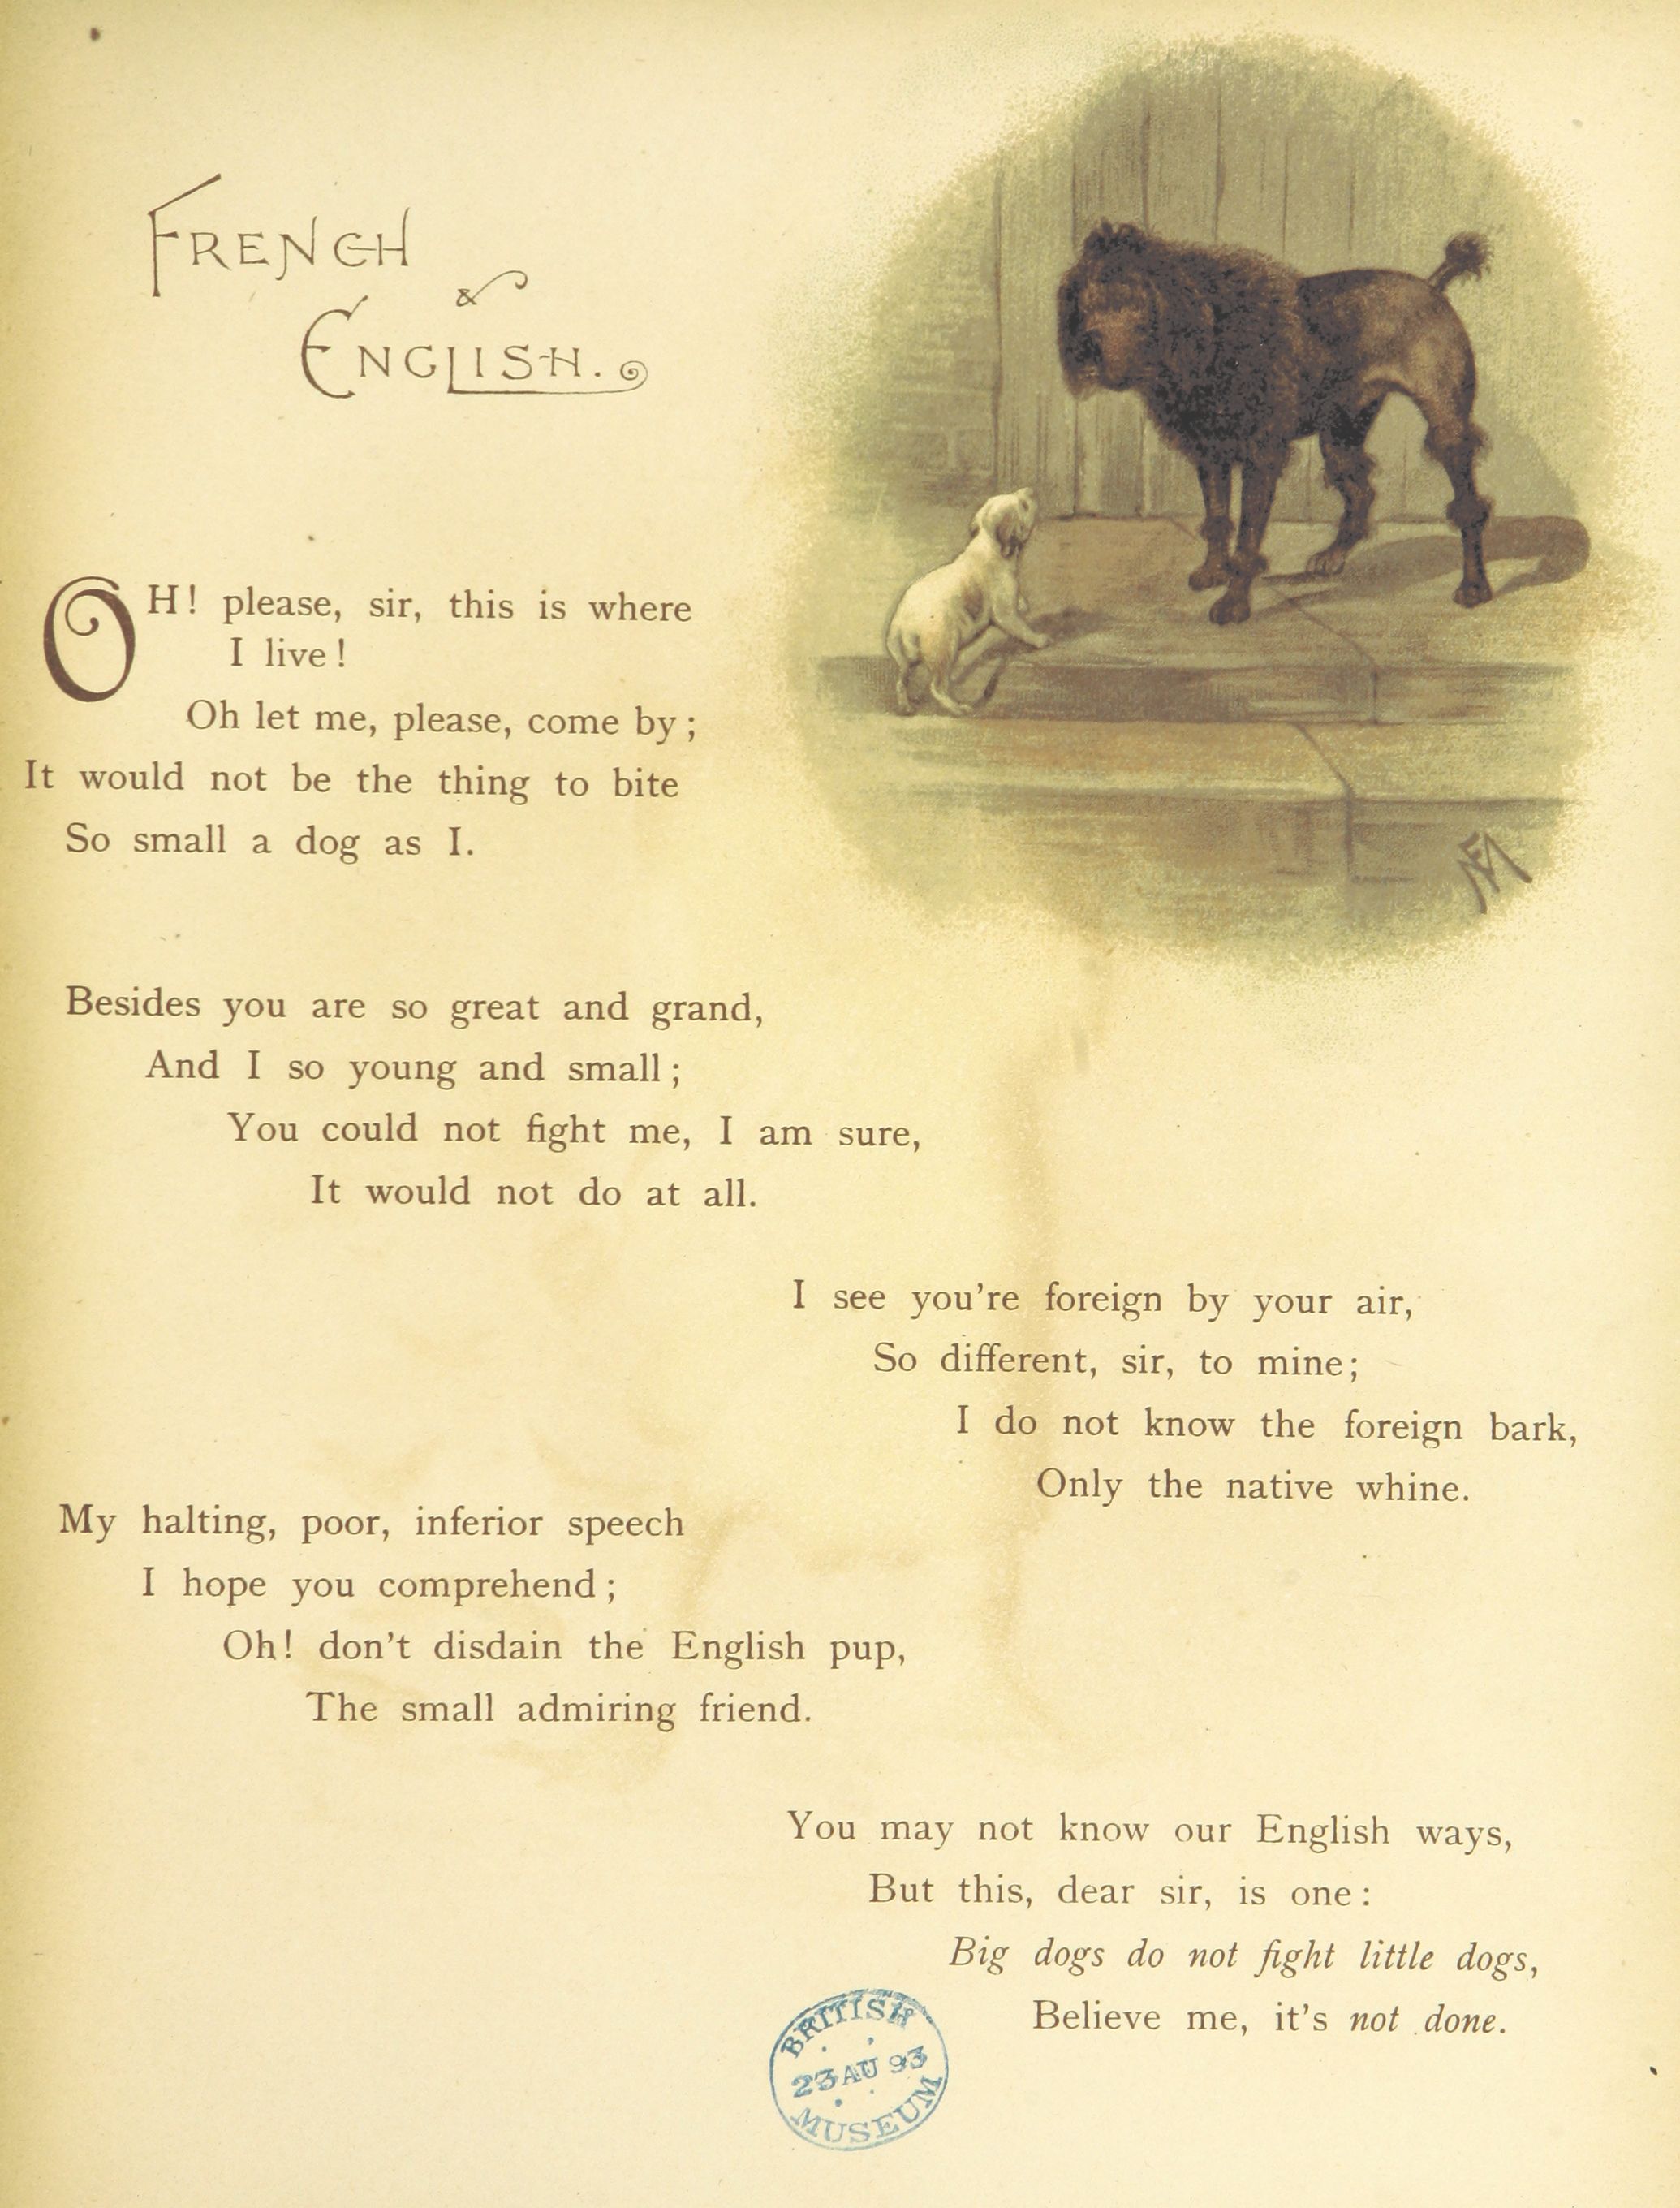 FRENCH
&
ENGLISH.
OH! please, sir, this is where
I live!
Oh let me, please, come by;
It would not be the thing to bite
So small a dog as I.
Besides you are so great and grand,
And I so young and small;
You could not fight me, I am sure,
It would not do at all.
I see you're foreign by your air,
So different, sir, to mine;
I do not know the foreign bark,
Only the native whine.
My halting, poor, inferior speech
I hope you comprehend;
Oh! don't disdain the English pup,
The small admiring friend.
You may not know our English ways,
But this, dear sir, is one:
Big dogs do not fight little dogs,
Believe me, it's not done.
BRITISH
23 AU 93
MUSEUM